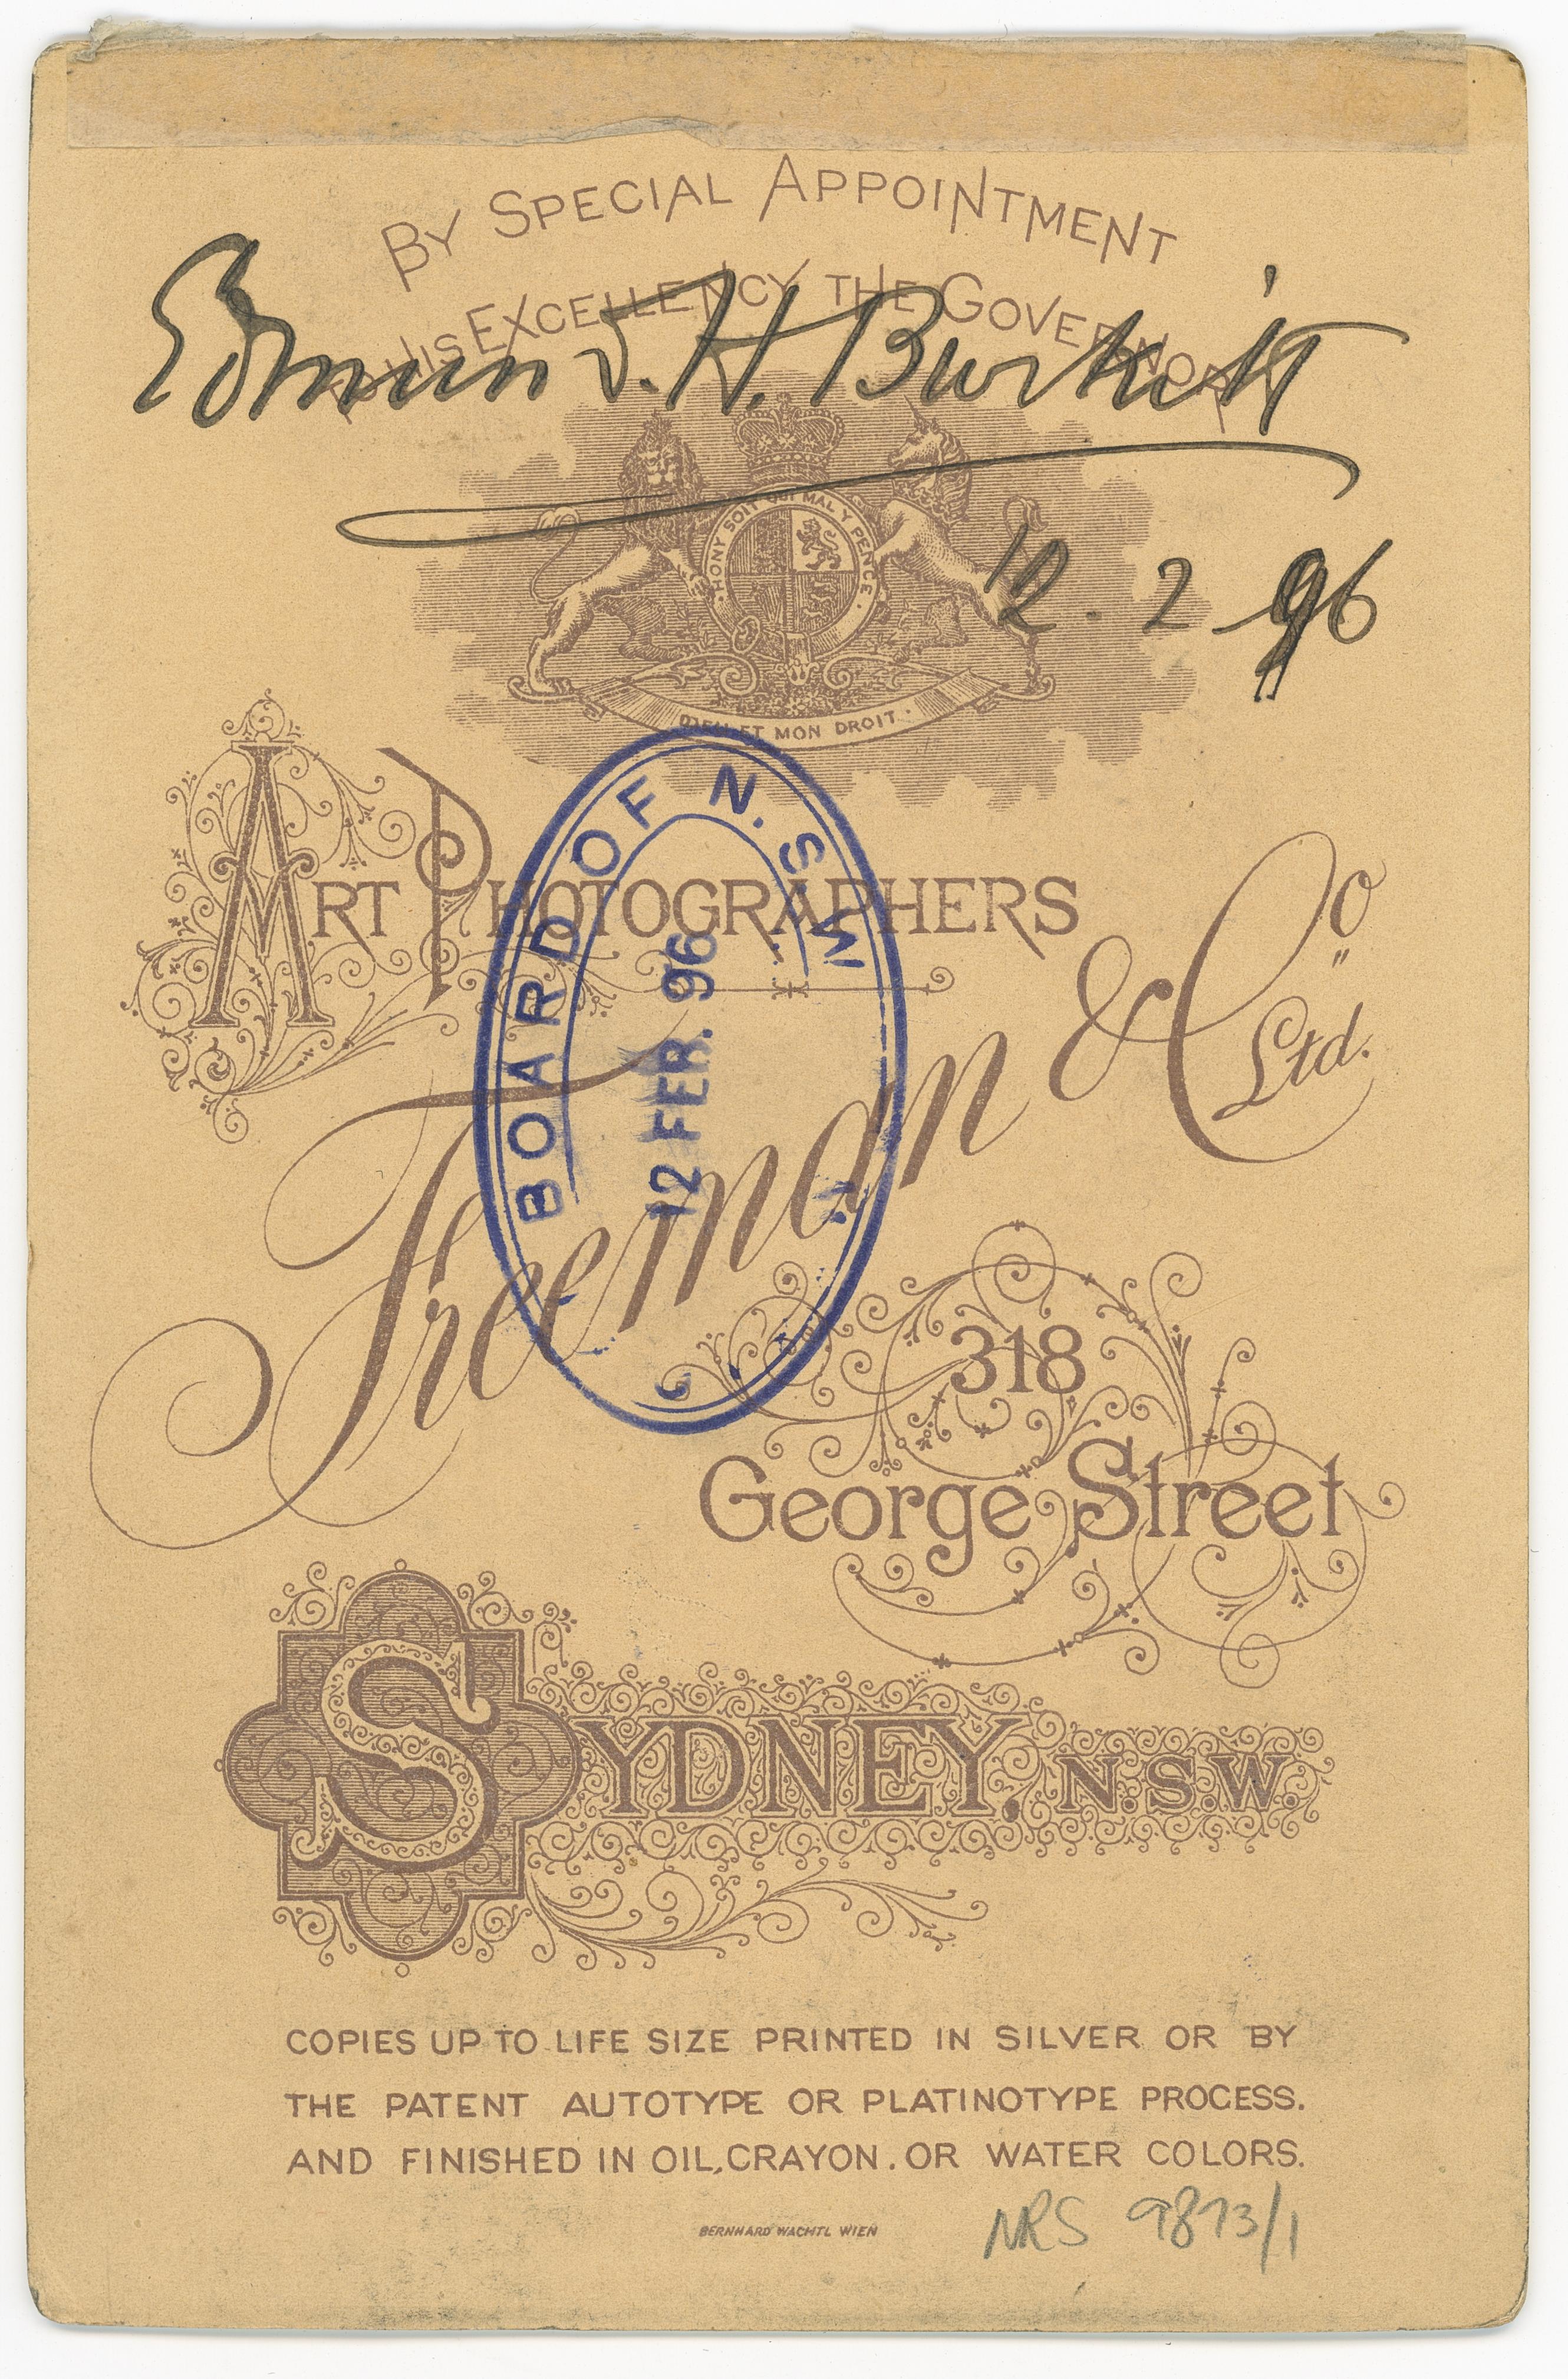 BY SPECIAL APPOINTMENT
TO HIS EXCELLENCY THE GOVERNOR
Edmund. H. Burkitt
HONY SOIT QUI MAL Y PENCE.
12 - 2 - 96
DIEU ET MON DROIT.
ART PHOTOGRAPHERS
BOARD OF N.S.W.
12 FEB. 96
Freeman & Co Ltd.
318
George Street
SYDNEY, N.S.W.
COPIES UP TO LIFE SIZE PRINTED IN SILVER OR BY
THE PATENT AUTOTYPE OR PLATINOTYPE PROCESS.
AND FINISHED IN OIL, CRAYON. OR WATER COLORS.
BERNHARD WACHTL WIEN
NRS 9873/1